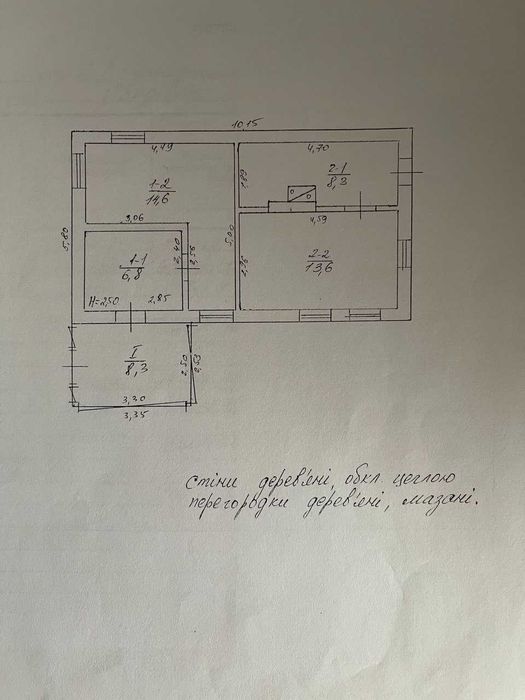 10.15
4,49
4,70
1-2
14,6
1,89
2-1
8,3
3,06
4,59
5,80
5,00
2,40
2,56
1-1
6,8
2,96
2-2
13,6
H=2,50
2,85
I
8,3
2,50
2,53
3,30
3,35
стіни дерев'яні, обкл. цеглою
перегородки дерев'яні, мазані.